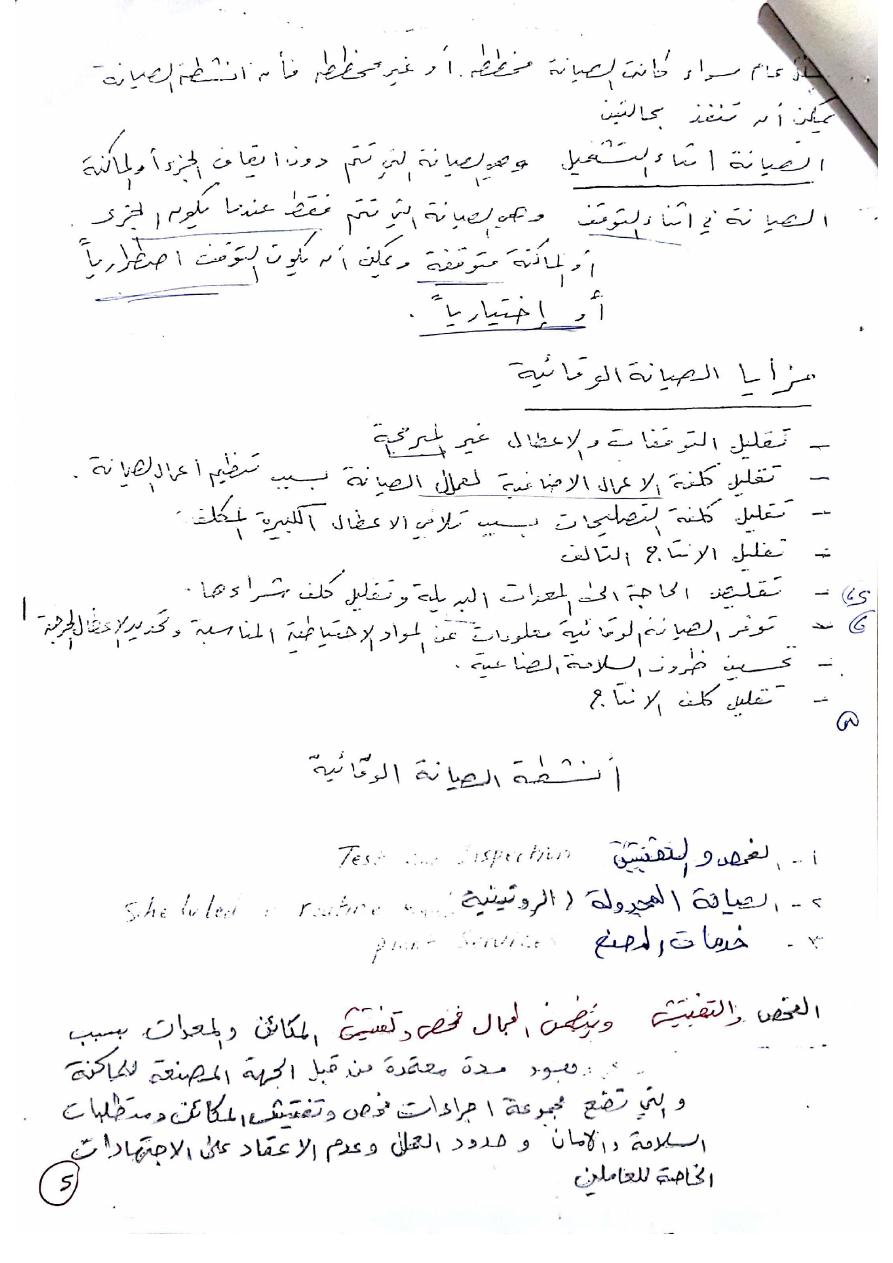 عام سواء كانت الصيانة مخططه أو غير مخططه فأن انشطة الصيانة
يمكن أن تنفذ بحالتين
الصيانة اثناء التشغيل وهي الصيانة التي تتم دون ايقاف الجزء أو الماكنة
الصيانة في اثناء التوقف وهي الصيانة التي تتم فقط عندما يكون الجزء
أو الماكنة متوقفة ويمكن أن يكون التوقف اضطرارياً
أو إختيارياً .
مزايا الصيانة الوقائية
- تقليل التوقفات والاعطال غير المبرمجة
- تقليل كلفة الاعمال الاضافية لعمال الصيانة بسبب تنظيم أعمال الصيانة .
- تقليل كلفة التصليحات بسبب تلافي الاعطال الكبيرة المكلفة
- تقليل الانتاج التالف
- تقليص الحاجة الى المعدات البديلة وتقليل كلف شراءها .
- توفر الصيانة الوقائية معلومات عن المواد الاحتياطية المناسبة وتحديد الاعطال الحرجة
- تحسين ظروف السلامة الصناعية .
- تقليل كلف الانتاج
أنشطة الصيانة الوقائية
١- الفحص والتفتيش Test and Inspection
٢- الصيانة المجدولة (الروتينية Scheduled or routine
٣- خدمات المصنع Services
الفحص والتفتيش ويتضمن اعمال فحص وتفتيش المكائن والمعدات بسبب
وجود مدة معتمدة من قبل الجهة المصنعة للماكنة
والتي تضع مجموعة اجراءات فحص وتفتيش المكائن ومتطلبات
السلامة والامان وحدود العمل وعدم الاعتماد على الاجتهادات
الخاصة للعاملين
5